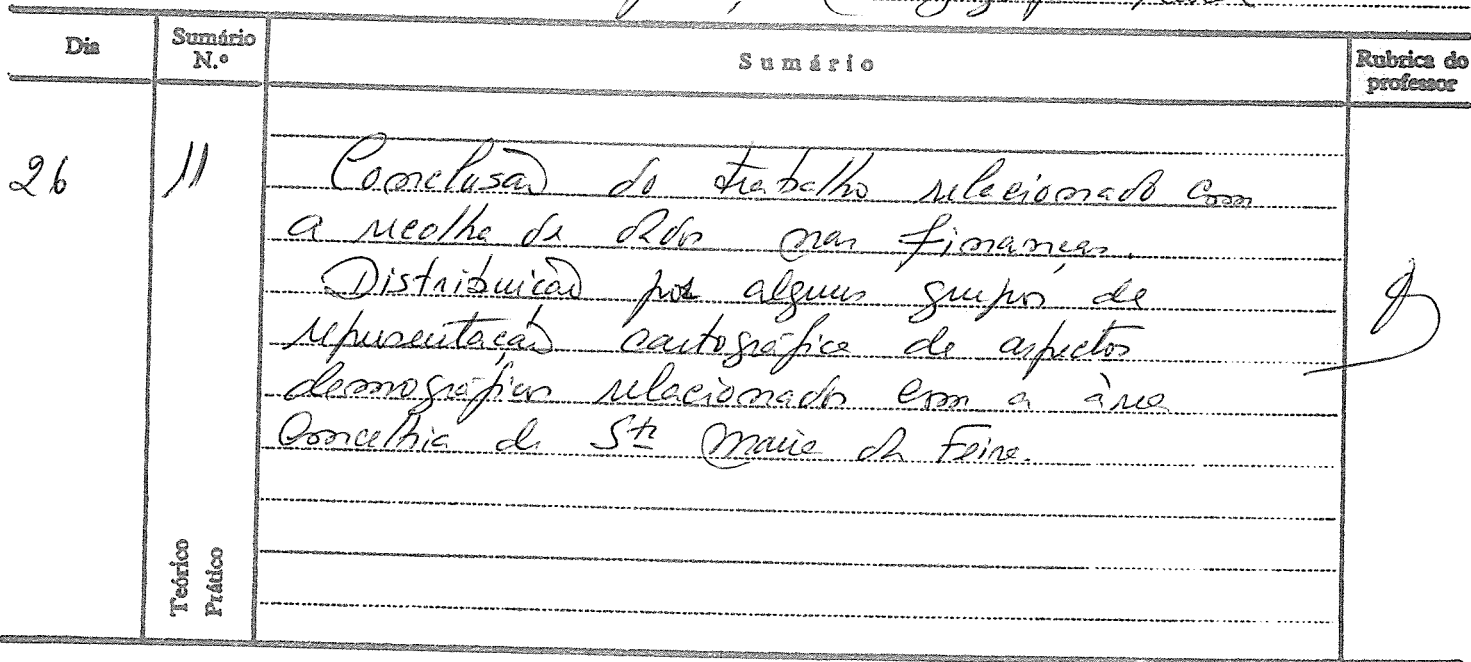 Dia
Sumário N.º
Sumário
Rubrica do professor
26
11
Conclusão do trabalho relacionado com
a recolha de dados nas finanças.
Distribuição por alguns grupos de
representação cartográfica de aspectos
demográficos relacionados com a àrea
Concelhia de Stª Maria da Feira.
Teórico
Prático